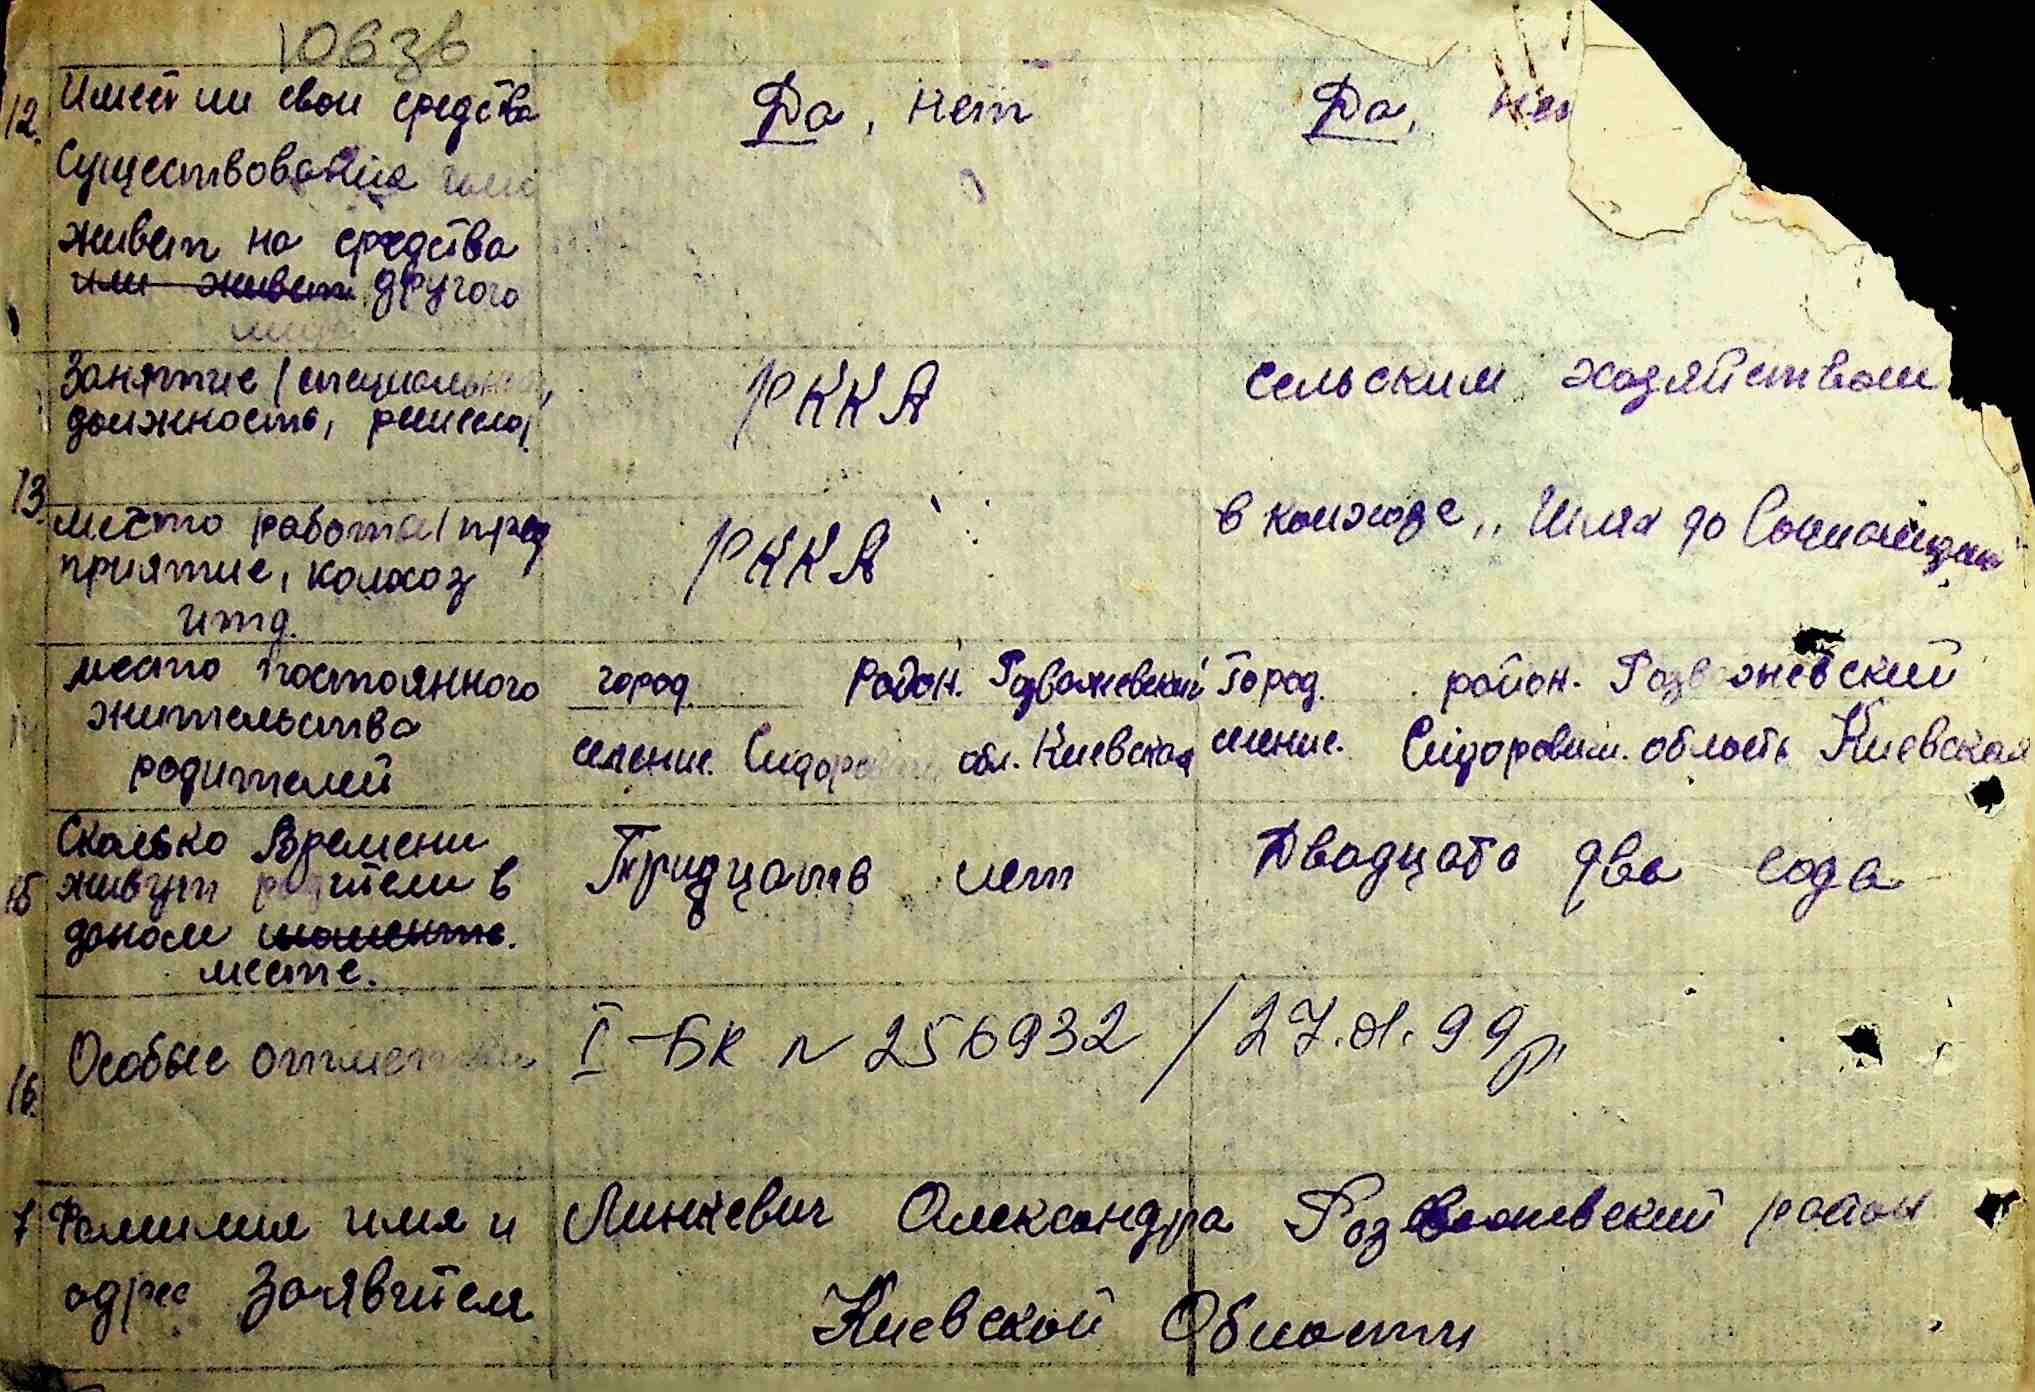 10636
12. Имеет ли свои средства Да, нет Да, нет
Существования или
живет на средства
или живет другого
лица
Занятие (специальность,
должность, ремесло) РККА сельским хозяйством
13. место работы (пред
приятие, колхоз
итд. РККА в колхозе „Шлях до Социализма
место постоянного город район. Розважевский город. район. Розважевский
жительства селение. Сидоровичи обл. Киевская селение. Сидоровичи. область Киевская
родителей
15 Сколько Времени Тридцать лет Двадцать два года
живут родители в
даном моменте.
месте.
16. Особые отметки I-БК N 256932 / 27.01.99р.
7 Фамилия имя и Линкевич Олександра Розважевский район
адрес Заявителя Киевской Области